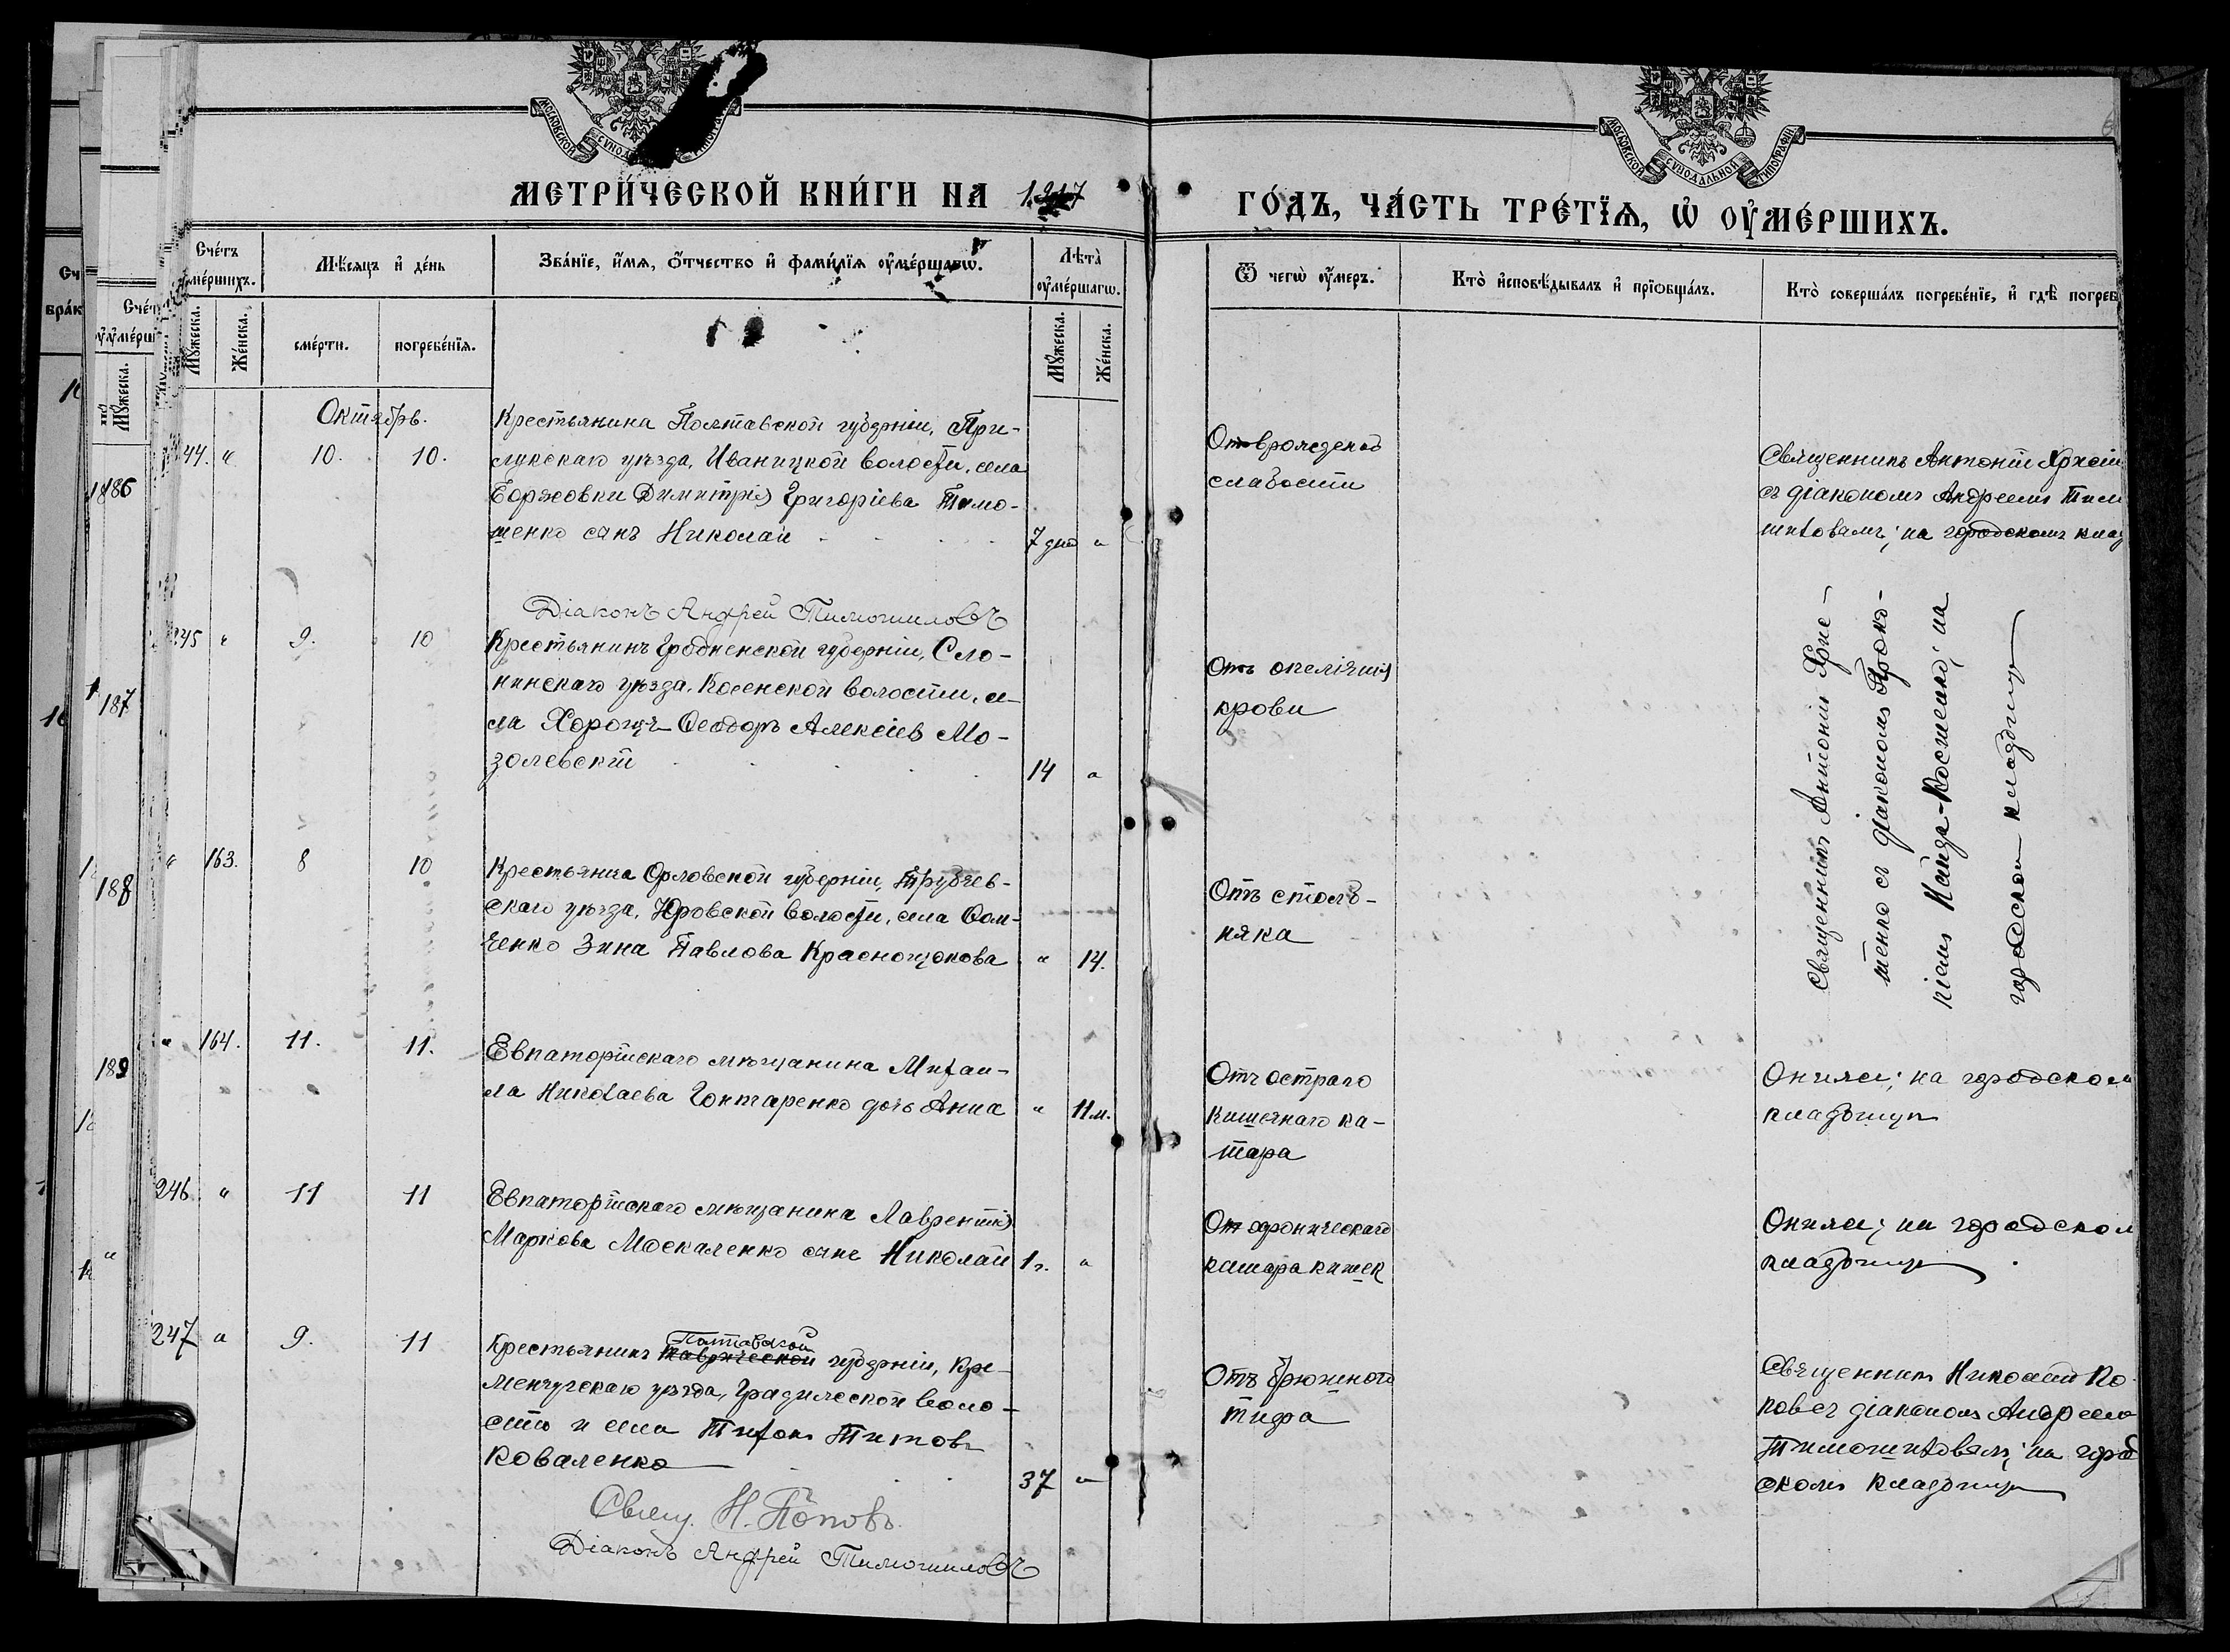 МОСКОВСКОЙ
МОСКОВСКОЙ СѴНОДАЛЬНОЙ ТИПОГРАФІИ
МЕТРИ́ЧЕСКОЙ КНИ́ГИ НА 1917
ГО́ДЪ, ЧА́СТЬ ТРЕ́ТЇѦ, Ѡ҆ ОУ҆МЕ́РШИХЪ.
Сче́тъ
оумершихъ.
Мѣ́сяцъ и҆ де́нь
Зва́нїе, и҆́мѧ, о҆́тчество и҆ фами́лїѧ оу҆ме́ршагѡ.
Лѣта̀
оу҆ме́ршагѡ.
Ѿ чегѡ̀ оу҆́меръ.
Кто̀ и҆сповѣ́дывалъ и҆ прїѡбща́лъ.
Кто̀ соверша́лъ погребе́нїе, и҆ гдѣ̀ погреб
Мꙋ́жеска.
Же́нска.
сме́рти.
погребе́нїѧ.
Мꙋ́жеска.
Же́нска.
Октябрь.
44. " 10. 10.
Крестьянина Полтавской губерніи, При-
лукскаго уѣзда, Иваницкой волости, села
Боржовки Димитрія Григоріева Тимо-
шенко сынъ Николай
7 дне "
От врожденой
слабости
Священникъ Антоній
съ діакономъ Андреемъ Тим
шиловымъ; на городскомъ клад
Діаконъ Андрей Тимошиловъ
245 " 9. 10
Крестьянинъ Гродненской губерніи, Сло-
нинскаго уѣзда, Косенской волости, се-
ла Хорощъ Ѳеодоръ Алексіевъ Мо-
золевскій
14 "
Отъ
крови
Священникъ Антоній
шенко съ діакономъ Проко-
піемъ Кайда-Косменко; на
городском кладбищѣ
" 163. 8 10
Крестьянка Орловской губерніи, Трубчев-
скаго уѣзда, Юровской волости, села Ѳом-
ченко Зина Павлова Краснощокова
" 14.
Отъ столб-
няка
" 164. 11. 11.
Евпаторійскаго мѣщанина Михаи-
ла Николаева Гонтаренко дочь Анна
" 11 м.
Отъ остраго
кишечнаго ка-
тара
Они же; на городском
кладбищѣ
246. " 11 11
Евпаторійскаго мѣщанина Лаврентія
Маркова Москаленко сынъ Николай
1 г. "
От хроническаго
катара кишек
Они же; на городском
кладбищѣ
247 " 9. 11
Полтавской
Крестьянинъ Таврической губерніи, Кре-
менчугскаго уѣзда, Градижской воло-
сти и села Тихонъ Титовъ
Коваленко
37 "
Отъ брюшного
тифа
Священникъ Николай По
повъ съ діакономъ Андреем
Тимошиловымъ; на город
скомъ кладбищѣ
Свящ. Н. Поповъ.
Діаконъ Андрей Тимошиловъ
186
187
188
189